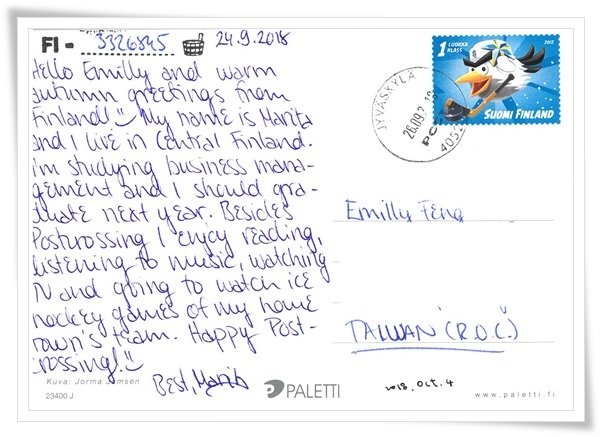 FI - 3326845 24.9.2018
Hello Emilly and warm
autumn greetings from
Finland! My name is Marita
and I live in Central Finland.
I'm studying business mana-
gement and I should gra-
duate next year. Besides
Postcrossing I enjoy reading,
listening to music, watching
TV and going to watch ice
hockey games of my home
town's team. Happy Post-
crossing!
Best, Marita
Kuva: Jorma Jämsén
23400 J
PALETTI
1 LUOKKA
KLASS
2017
SUOMI FINLAND
JYVÄSKYLÄ
26.09.2
Emilly Feng
TAIWAN (R.O.C.)
2018. Oct. 4
www.paletti.fi